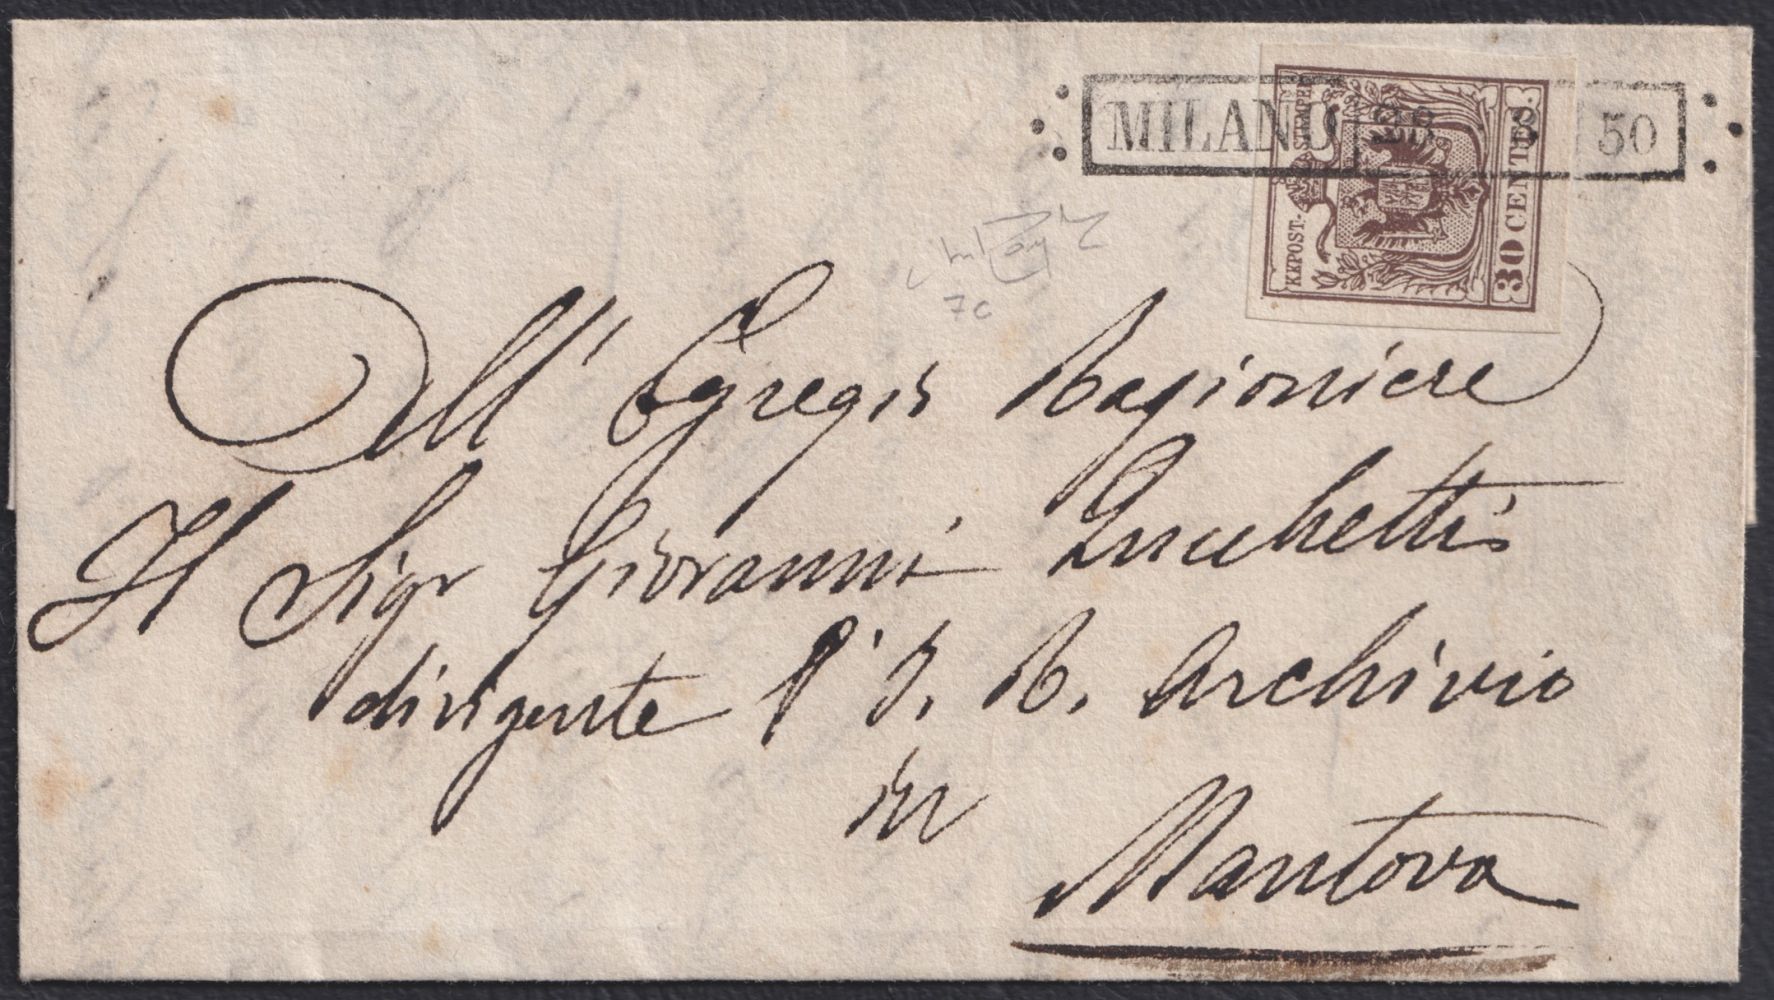 MILANO 28 50
KKPOST-STEMPEL
30 CENTES.
7c
All' Egregio Ragioniere
Il Sigr Giovanni Lucchetti
dirigente l' I. R. Archivio
in
Mantova